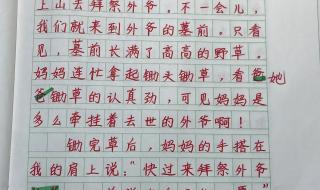 上山去拜祭外爷。不一会儿，
我们就来到外爷的墓前。只看
见，墓前长满了高高的野草。
妈妈连忙拿起锄头锄草，看她
锄草的认真劲，可见妈妈是
多么牵挂着去世的外爷啊！
锄完草后，妈妈的手搭在
我的肩上说：“快过来拜祭外爷